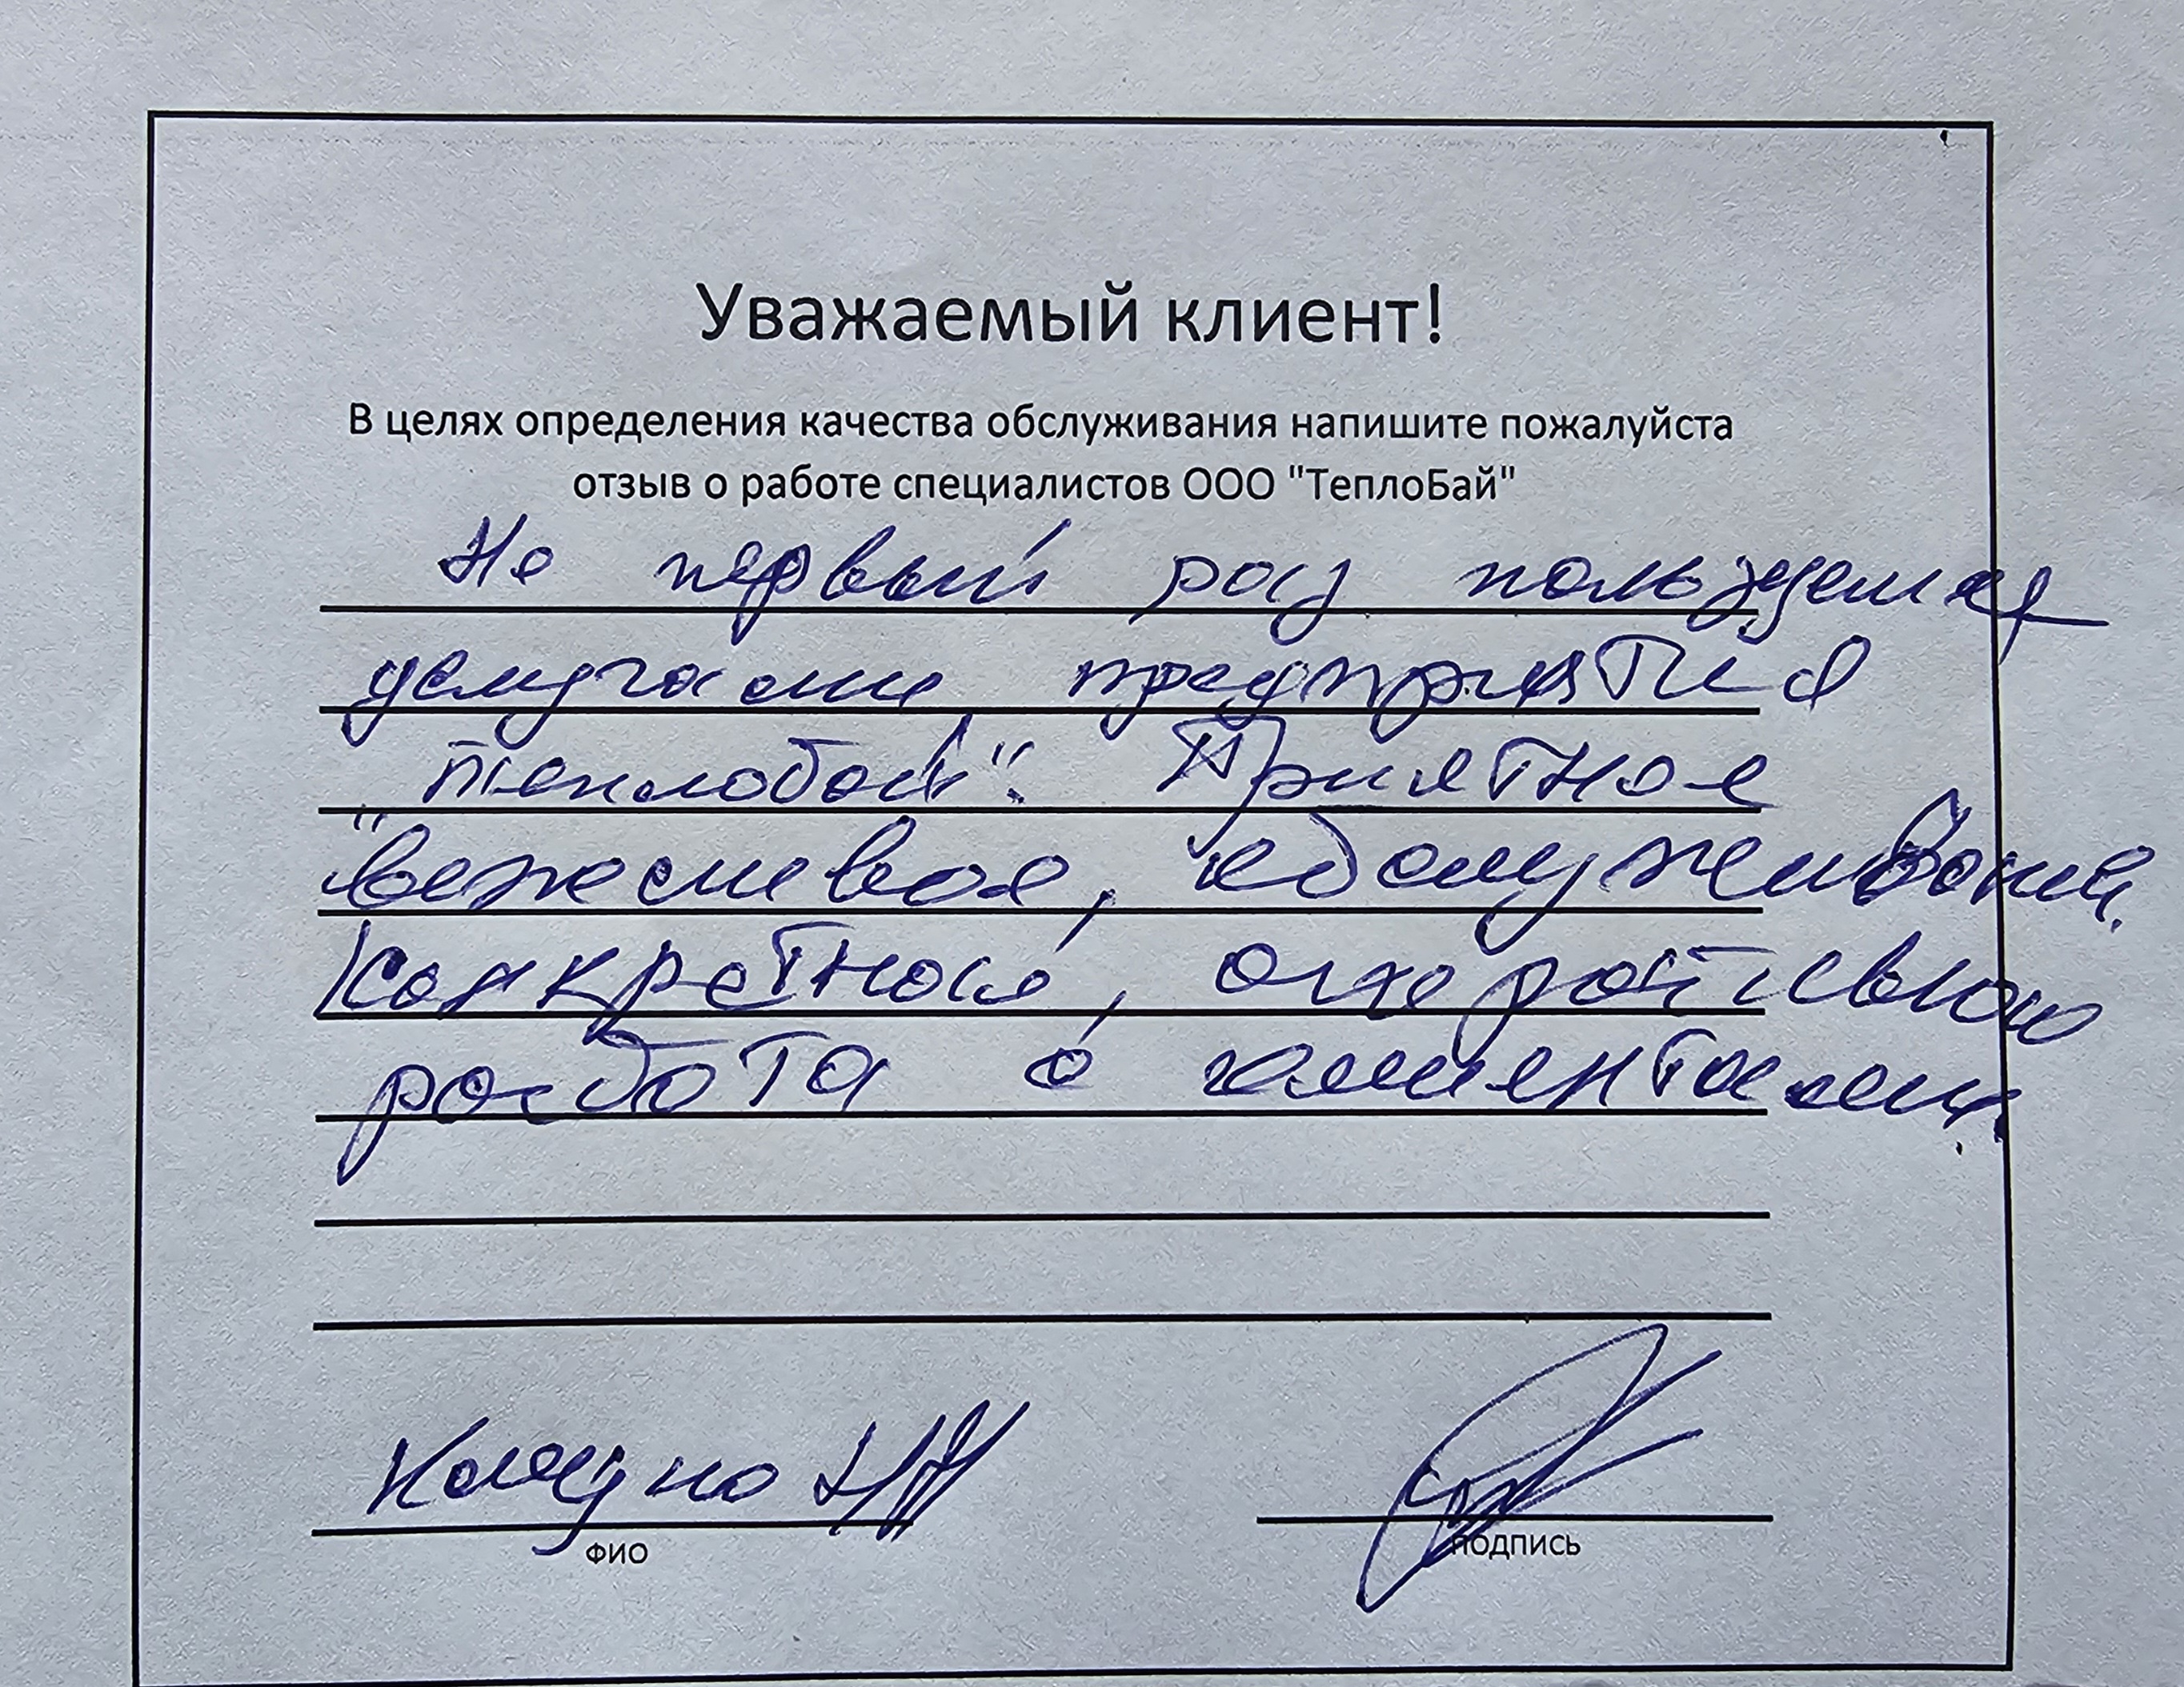 Уважаемый клиент!
В целях определения качества обслуживания напишите пожалуйста
отзыв о работе специалистов ООО "ТеплоБай"
Не первый раз пользуемся
услугами предприятия
"Теплобай". Приятное
вежливое, обслуживание.
Конкретная, оперативная
работа с клиентами.
ФИО
подпись